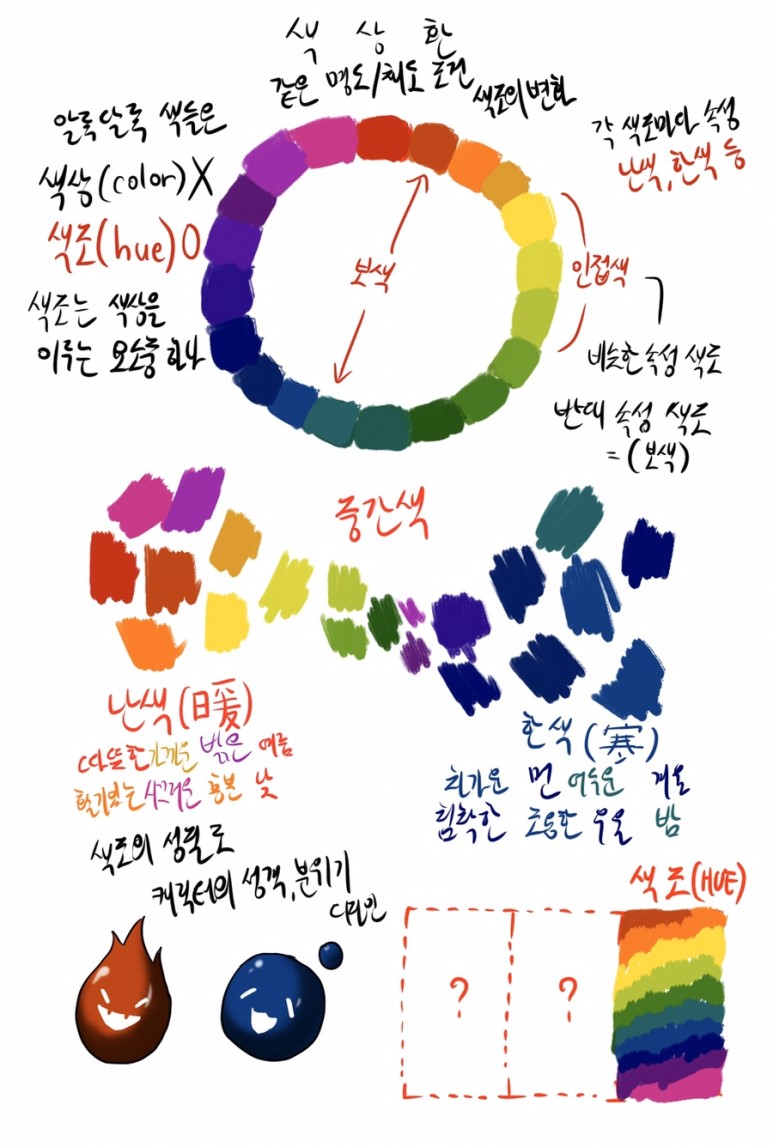 색 상 환
같은 명도/채도 조건
색조의 변화
알록달록 색들은
색상(color)X
색조(hue)O
색조는 색상을
이루는 요소중 하나
각 색조마다 속성
난색,한색 등
보색
인접색
비슷한 속성 색조
반대 속성 색조
=(보색)
중간색
난색(日暖)
따뜻한 가까운 밝은 여름
활기있는 시끄러운 흥분 낮
한색(寒)
차가운 먼 어두운 겨울
침착한 조용한 우울 밤
색조의 성질로
캐릭터의 성격,분위기
디자인
색조(HUE)
? ?